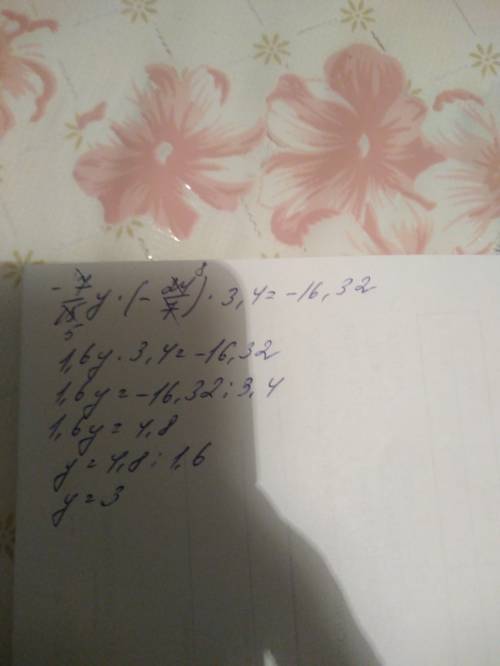 -7/15 y · (-24/7) · 3,4 = -16,32
5 8
1,6y · 3,4 = -16,32
1,6y = -16,32 : 3,4
1,6y = 4,8
y = 4,8 : 1,6
y = 3